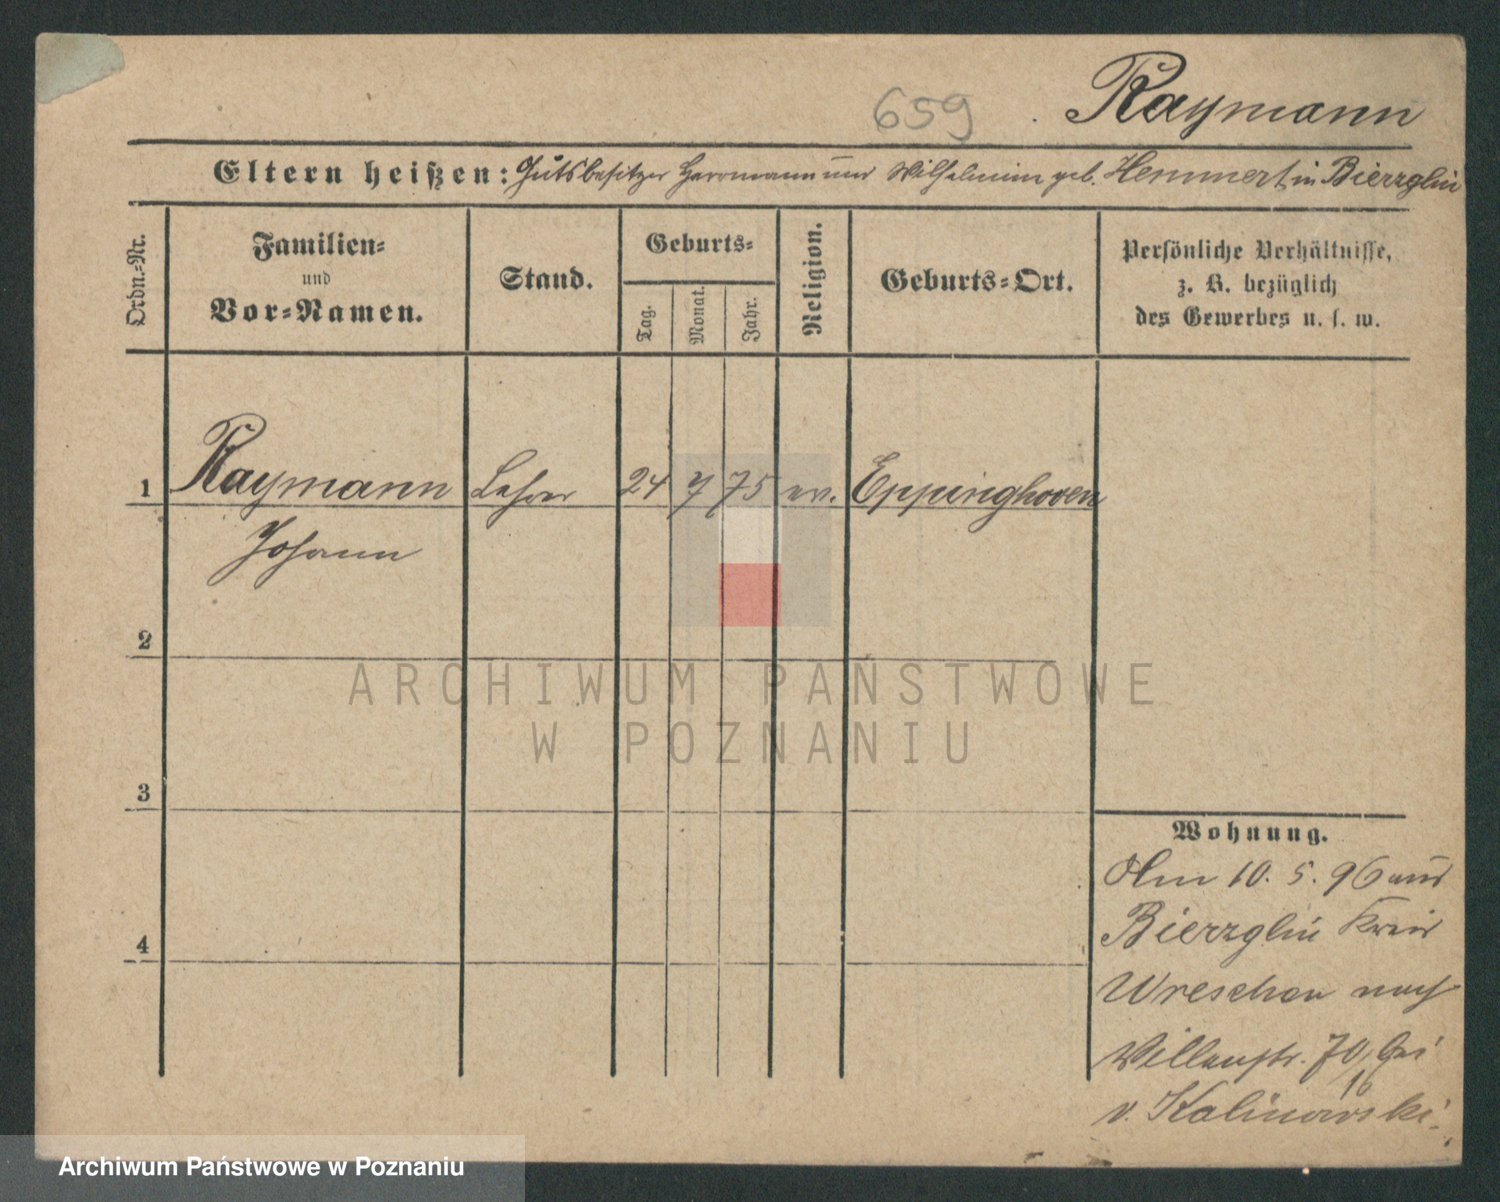 659 Raymann
Eltern heißen: Gutsbesitzer Herrmann und Wilhelmine geb. Hemmert in Bierzglin
Ordn.-Nr.
Familien-
und
Vor-Namen.
Stand.
Geburts-
Tag.
Monat.
Jahr.
Religion.
Geburts-Ort.
Persönliche Verhältnisse,
z. B. bezüglich
des Gewerbes u. s. w.
1 Raymann Lehrer 24 7 75 ev. Eppinghoven
Johann
2
3
4
Wohnung.
Am 10. 5. 96 aus
Bierzglin Kreis
Wreschen nach
70, bei
v. Kalinowski.
ARCHIWUM PAŃSTWOWE
W POZNANIU
Archiwum Państwowe w Poznaniu